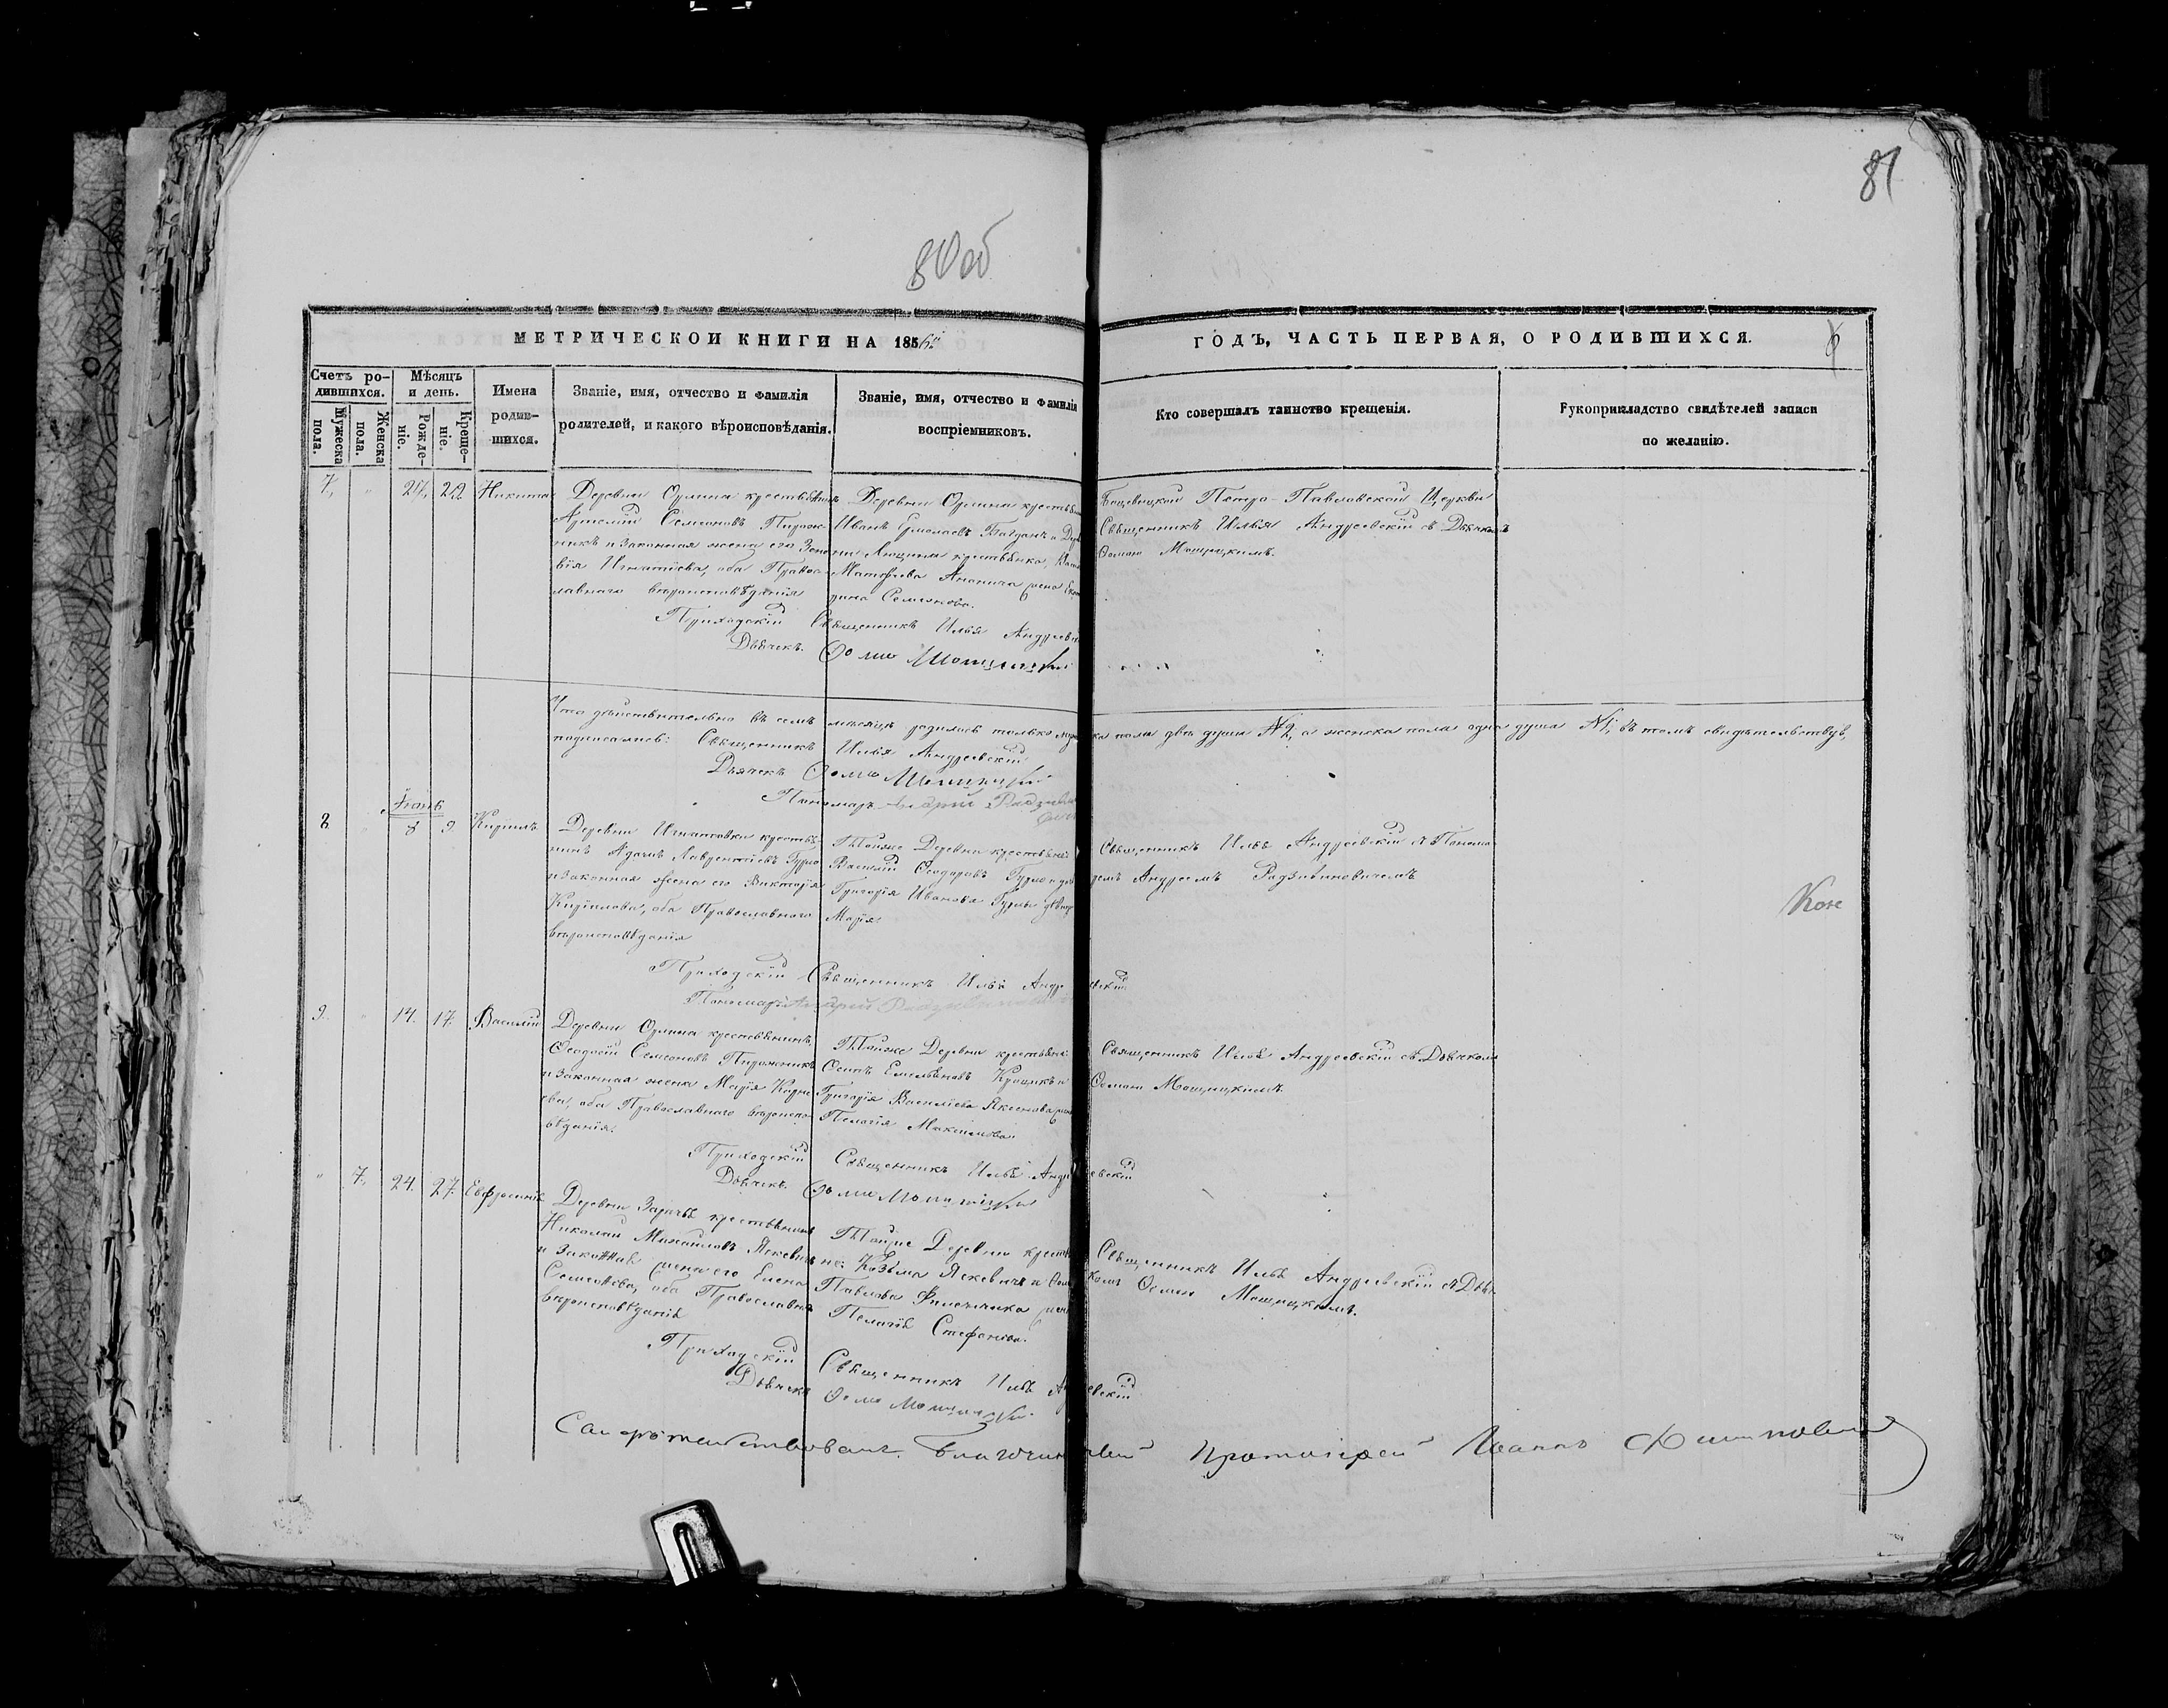 81
80 об
МЕТРИЧЕСКОЙ КНИГИ НА 1856й
ГОДЪ, ЧАСТЬ ПЕРВАЯ, О РОДИВШИХСЯ.
6
Счетъ ро-
дившихся.
Мѣсяцъ
и день.
Мужеска
пола.
Женска
пола.
Рожде-
ніе.
Креще-
ніе.
Имена
родив-
шихся.
Званіе, имя, отчество и фамилія
родителей, и какого вѣроисповѣданія.
Званіе, имя, отчество и фамилія
воспріемниковъ.
Кто совершалъ таинство крещенія.
Рукоприкладство свидѣтелей записи
по желанію.
7. " 21. 22 Никита
Деревни Орлина крестьянинъ
Артемій Семеоновъ Пирож-
никъ и законная жена его Зено
вія Игнатіева, оба Правос-
лавнаго вѣроисповѣданія
Деревни Орлина крестьян
Иванъ Ермолаевъ Богданъ и Дер
крестьянка,
Матѳеева жена
Семенова.
Петро-Павловской Церкви
Священникъ Илья Андреевскій съ Дьячкомъ
Ѳомою Мощицкимъ.
Приходскій Священникъ Илья Андреевс
Дьячекъ Ѳома Мощицкій
Что дѣйствительно въ семъ мѣсяцѣ родилось только муж ка пола двѣ души № 2, а женска пола одна душа № 1, въ томъ свидѣтельствуя,
подписались: Священникъ Илья Андреевскій
Дьячекъ Ѳома Мощицкій
Пономарь Андрей
8. " 8 9. Кирилъ
Деревни Игнатовки крестья-
нинъ Адамъ Лаврентіевъ Гурло
и законная жена его Виктория
Кирилова, оба Православнаго
вѣроисповѣданія
Тойже Деревни крестьянин
Василій Ѳеодоровъ Гурло и дѣ
Григорія Иванова Гурлы дочер
Марія
Священникъ Илья Андреевскій съ Понома
ремъ Андреемъ Радзивиновичемъ
Приходскій Священникъ Илья Андре евскій
Пономарь Андрей
9. " 14. 17. Василій
Деревни Орлина крестьянинъ
Ѳеодосій Семеоновъ Пирожникъ
и законная жена Марія Карпо
ва, оба Православнаго вѣроиспо-
вѣданія.
Тойже Деревни крестьяни
Осипъ Емельяновъ и
Григорія Васильева жена
Пелагія Максимова
Священникъ Илья Андреевскій съ Дьячкомъ
Ѳомою Мощицкимъ.
Приходскій Священникъ Илья Андр евскій
Дьячекъ Ѳома Мощицкій
" 7. 24. 27. Евфросинія
Деревни Заречья крестьянинъ
Николай Михайловъ Яскевичъ
и законная жена его Елена
Семеонова, оба Православна
вѣроисповѣданія
Тойже Деревни крестья
Козьма Яскевичъ и
Павлова жена
Пелагія Стефанова.
Священникъ Илья Андреевскій съ Дьяч
комъ Ѳомою Мощицкимъ.
Приходскій Священникъ Илья А евскій
Дьячекъ Ѳома Мощицкій
Благочинный Протоіерей Іоаннъ